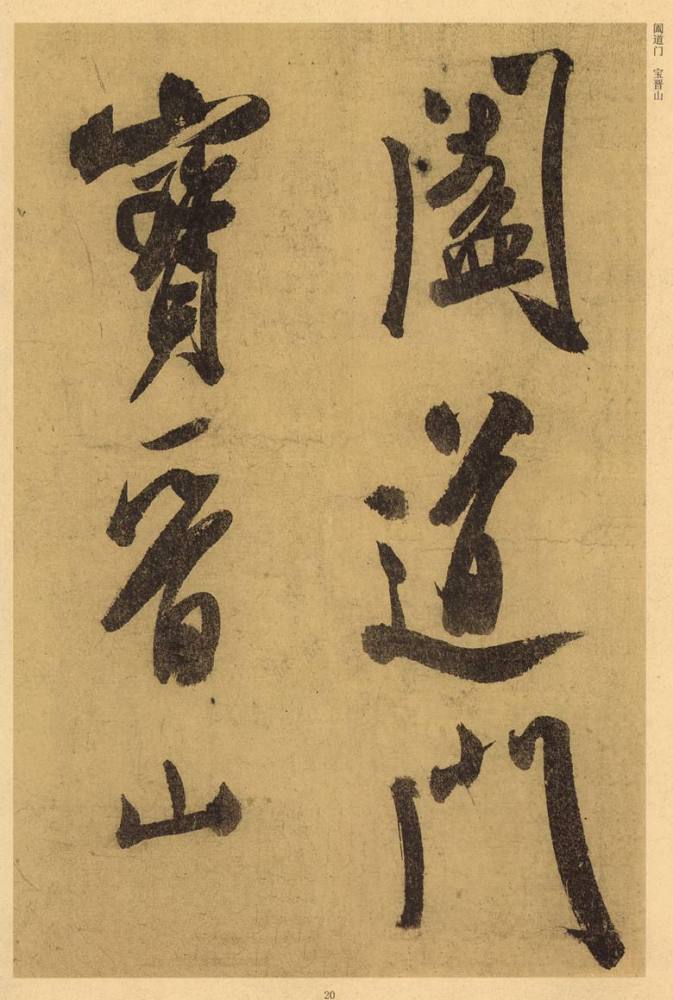 阖道门 宝晋山
闔道門
寶晋山
20